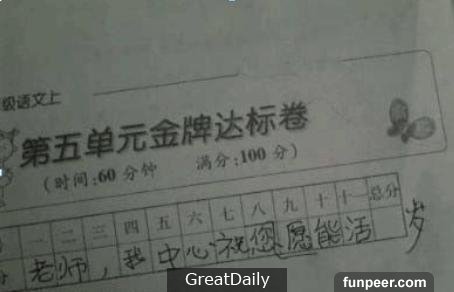 级语文上
第五单元金牌达标卷
(时间:60分钟 满分:100分)
一 二 三 四 五 六 七 八 九 十 十一 总分
老师,我中心祝您愿能活 岁
GreatDaily
funpeer.com